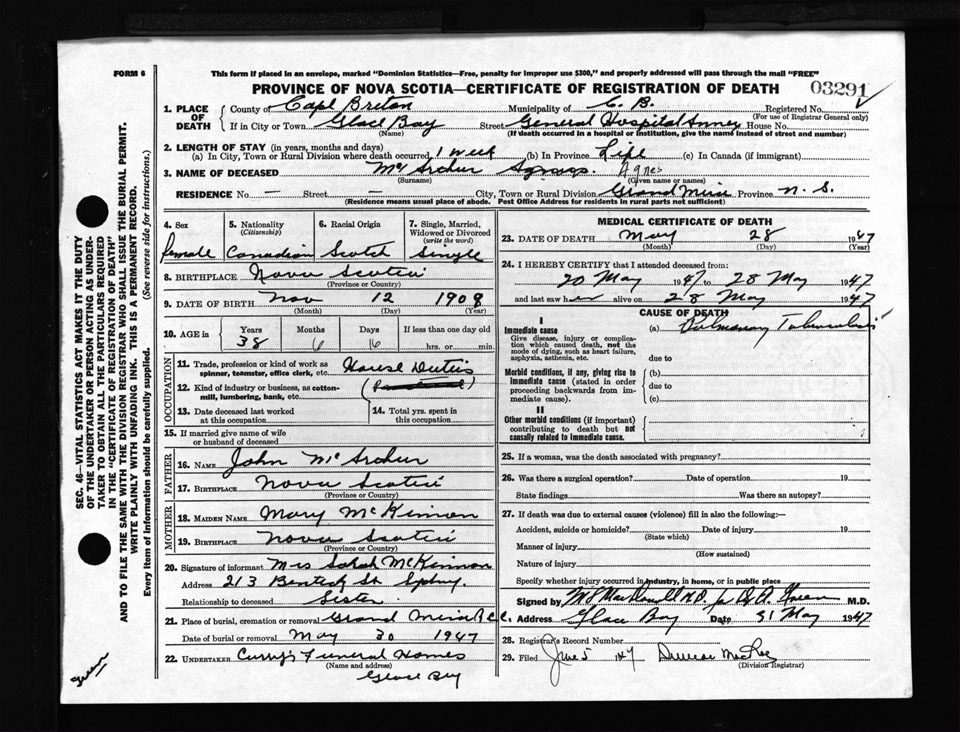 FORM 6
This form if placed in an envelope, marked "Dominion Statistics—Free, penalty for improper use $300," and properly addressed will pass through the mail "FREE"
PROVINCE OF NOVA SCOTIA—CERTIFICATE OF REGISTRATION OF DEATH
03291
1. PLACE OF DEATH
County of Cape Breton Municipality of C. B. Registered No.
(For use of Registrar General only)
If in City or Town Glace Bay Street General Hospital Annex House No.
(Name) (If death occurred in a hospital or institution, give the name instead of street and number)
2. LENGTH OF STAY (in years, months and days)
(a) In City, Town or Rural Division where death occurred 1 week (b) In Province Life (c) In Canada (if immigrant)
3. NAME OF DECEASED Agnes
(Surname) (Given name or names)
RESIDENCE No. — Street — City, Town or Rural Division Grand Mira Province N. S.
(Residence means usual place of abode. Post Office Address for residents in rural parts not sufficient)
4. Sex
female
5. Nationality
(Citizenship)
Canadian
6. Racial Origin
Scotch
7. Single, Married, Widowed or Divorced
(write the word)
Single
8. BIRTHPLACE Nova Scotia
(Province or Country)
9. DATE OF BIRTH Nov 12 1908
(Month) (Day) (Year)
10. AGE in Years Months Days If less than one day old
38 6 16 hrs. or min.
OCCUPATION
11. Trade, profession or kind of work as spinner, teamster, office clerk, etc. House Duties
12. Kind of industry or business, as cotton-mill, lumbering, bank, etc.
13. Date deceased last worked at this occupation
14. Total yrs. spent in this occupation
15. If married give name of wife or husband of deceased
FATHER
16. NAME John
17. BIRTHPLACE Nova Scotia
(Province or Country)
MOTHER
18. MAIDEN NAME Mary McKinnon
19. BIRTHPLACE Nova Scotia
(Province or Country)
20. Signature of informant Mrs Sarah McKinnon
Address 213 Bentick St Sydney.
Relationship to deceased Sister
21. Place of burial, cremation or removal Grand Mira R.C.C.
Date of burial or removal May 30 1947
22. UNDERTAKER Curry's Funeral Homes
(Name and address)
Glace Bay
MEDICAL CERTIFICATE OF DEATH
23. DATE OF DEATH May 28 1947
(Month) (Day) (Year)
24. I HEREBY CERTIFY that I attended deceased from:
20 May 1947 to 28 May 1947
and last saw her alive on 28 May 1947
CAUSE OF DEATH
I
Immediate cause (a) Pulmonary Tuberculosis
Give disease, injury or complication which caused death, not the mode of dying, such as heart failure, asphyxia, asthenia, etc. due to
Morbid conditions, if any, giving rise to immediate cause (stated in order proceeding backwards from immediate cause). (b) due to (c)
II
Other morbid conditions (if important) contributing to death but not causally related to immediate cause.
25. If a woman, was the death associated with pregnancy?
26. Was there a surgical operation? Date of operation 19
State findings Was there an autopsy?
27. If death was due to external causes (violence) fill in also the following:—
Accident, suicide or homicide? Date of injury 19
(State which)
Manner of injury
(How sustained)
Nature of injury
Specify whether injury occurred in industry, in home, or in public place
Signed by M.D.
Address Glace Bay Date 31 May 1947
28. Registrar's Record Number
29. Filed June 5 1947
(Division Registrar)
SEC. 46—VITAL STATISTICS ACT MAKES IT THE DUTY
OF THE UNDERTAKER OR PERSON ACTING AS UNDER-
TAKER TO OBTAIN ALL THE PARTICULARS REQUIRED
IN THE "CERTIFICATE OF REGISTRATION OF DEATH"
AND TO FILE THE SAME WITH THE DIVISION REGISTRAR WHO SHALL ISSUE THE BURIAL PERMIT.
WRITE PLAINLY WITH UNFADING INK. THIS IS A PERMANENT RECORD.
Every item of information should be carefully supplied. (See reverse side for instructions.)